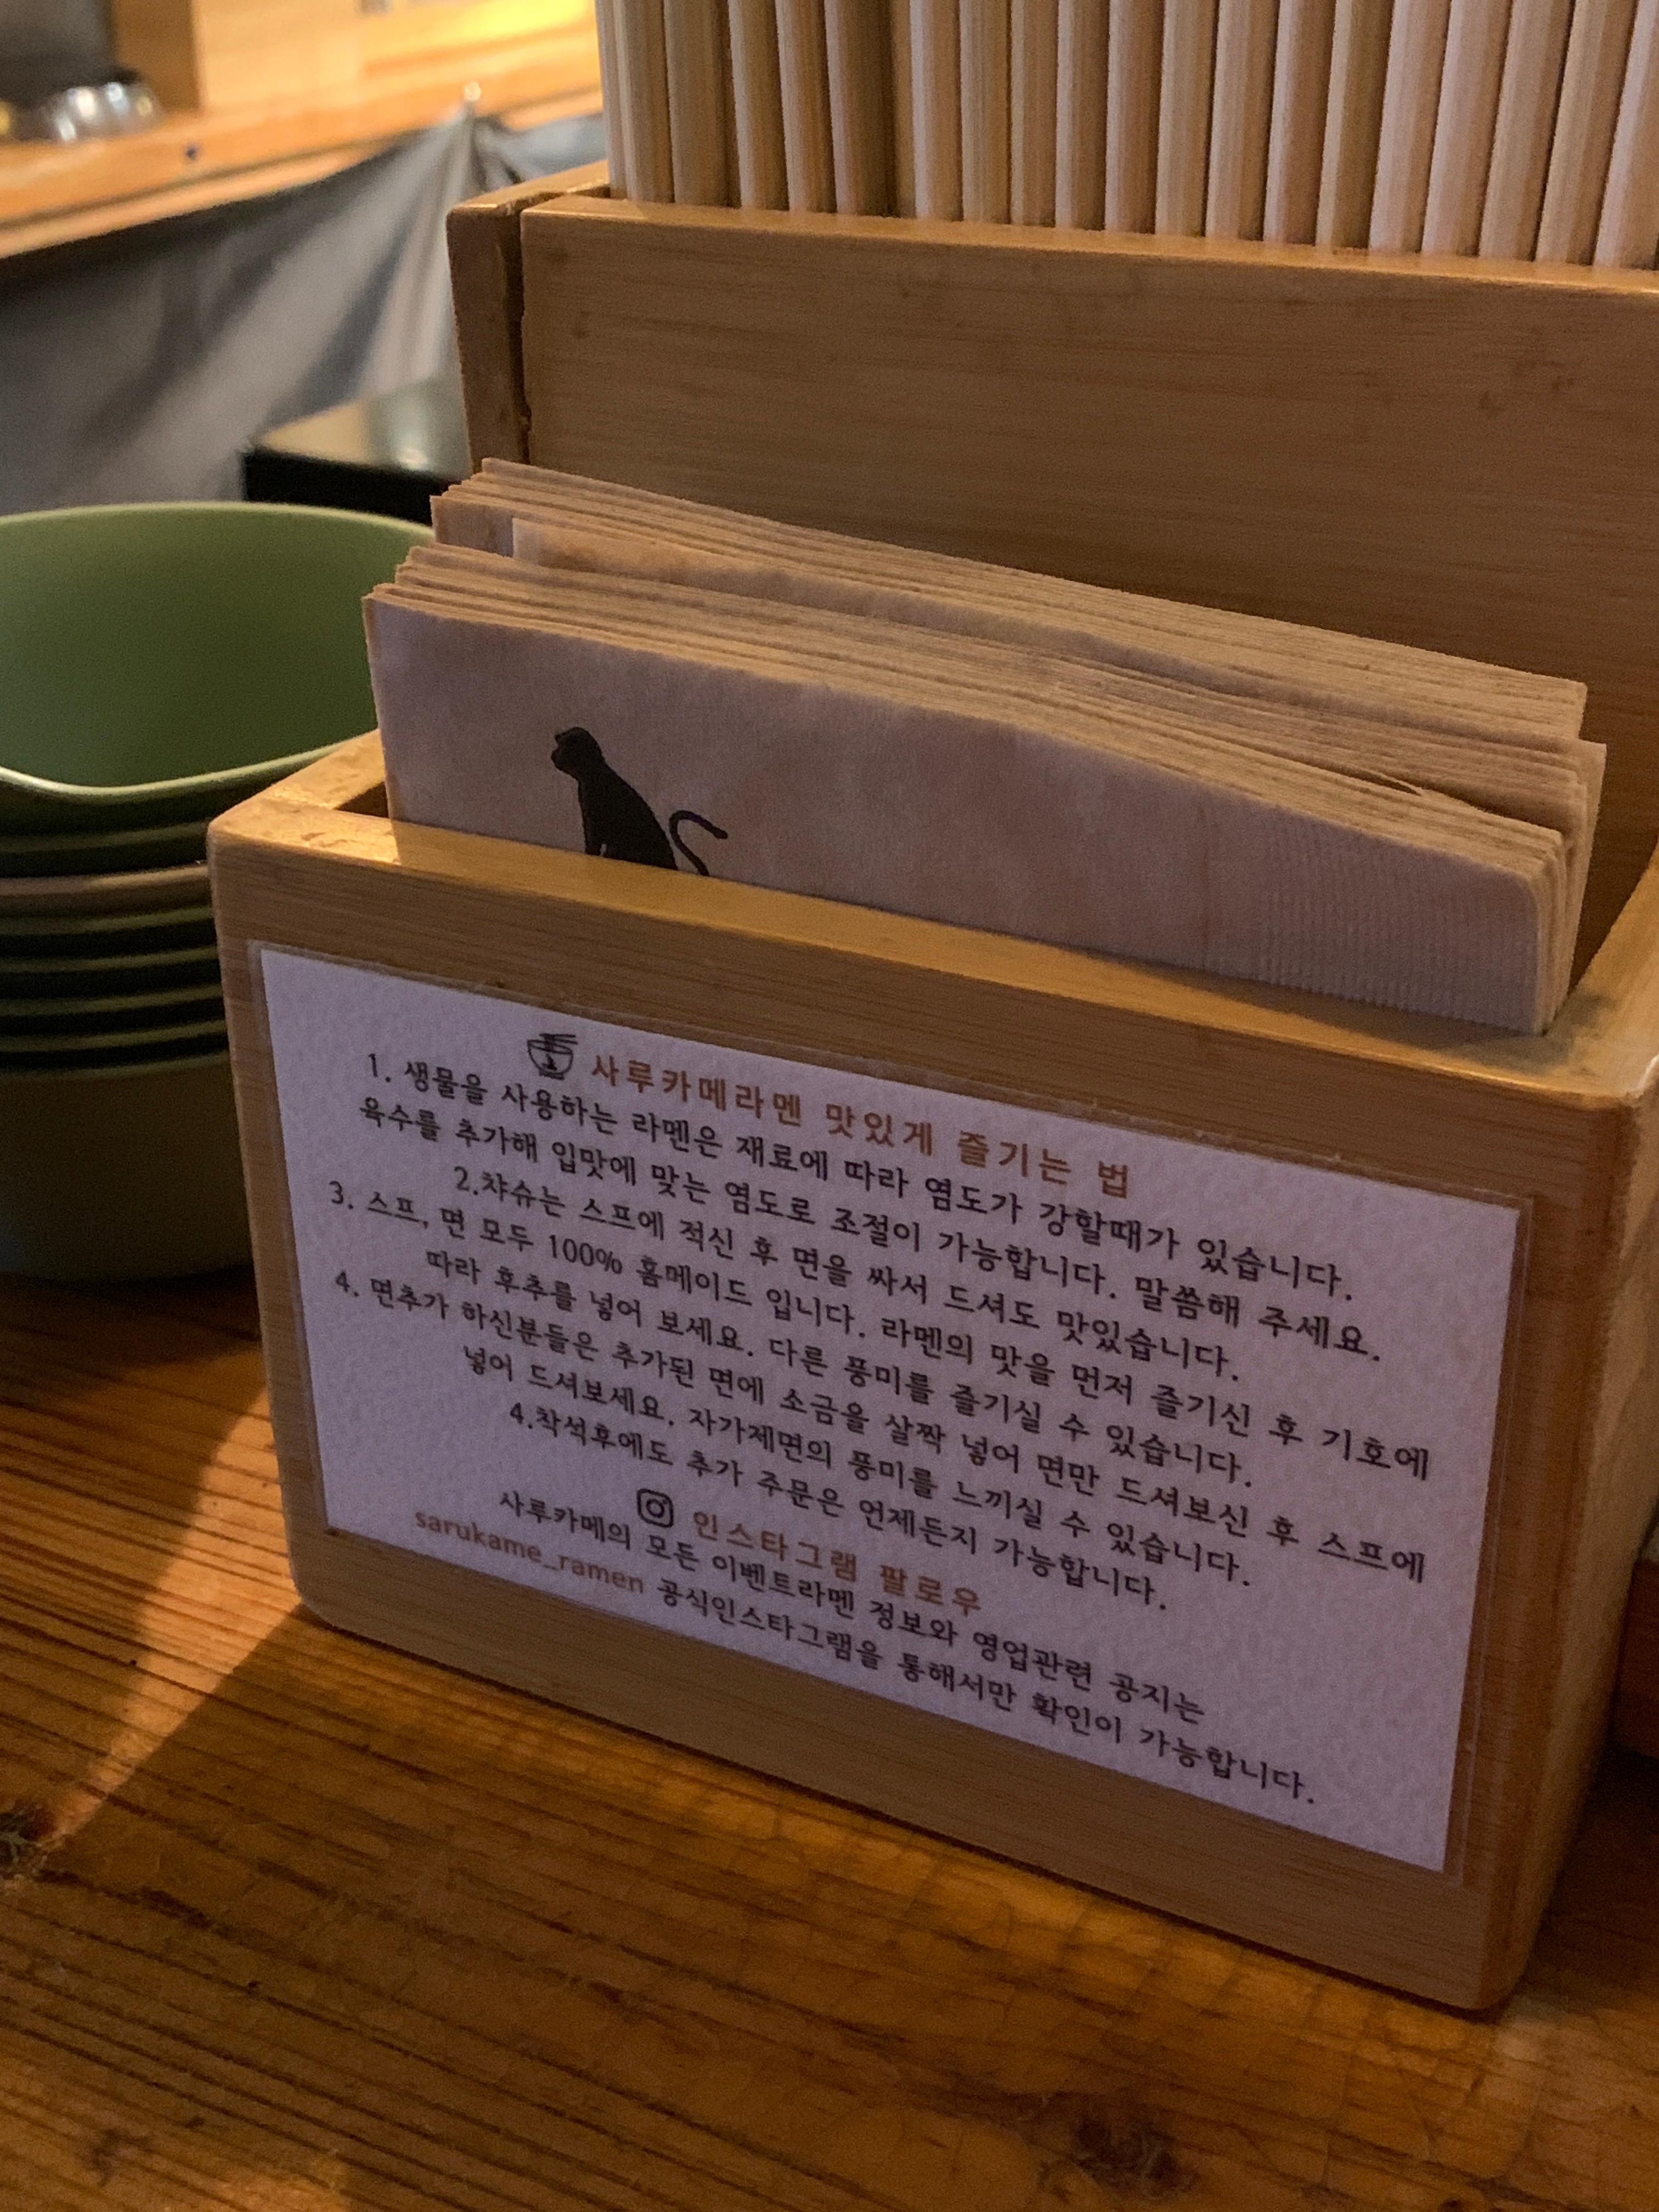 사루카메라멘 맛있게 즐기는 법
1. 생물을 사용하는 라멘은 재료에 따라 염도가 강할때가 있습니다.
육수를 추가해 입맛에 맞는 염도로 조절이 가능합니다. 말씀해 주세요.
2.챠슈는 스프에 적신 후 면을 싸서 드셔도 맛있습니다.
3. 스프, 면 모두 100% 홈메이드 입니다. 라멘의 맛을 먼저 즐기신 후 기호에
따라 후추를 넣어 보세요. 다른 풍미를 즐기실 수 있습니다.
4. 면추가 하신분들은 추가된 면에 소금을 살짝 넣어 면만 드셔보신 후 스프에
넣어 드셔보세요. 자가제면의 풍미를 느끼실 수 있습니다.
4.착석후에도 추가 주문은 언제든지 가능합니다.
인스타그램 팔로우
사루카메의 모든 이벤트라멘 정보와 영업관련 공지는
sarukame_ramen 공식인스타그램을 통해서만 확인이 가능합니다.